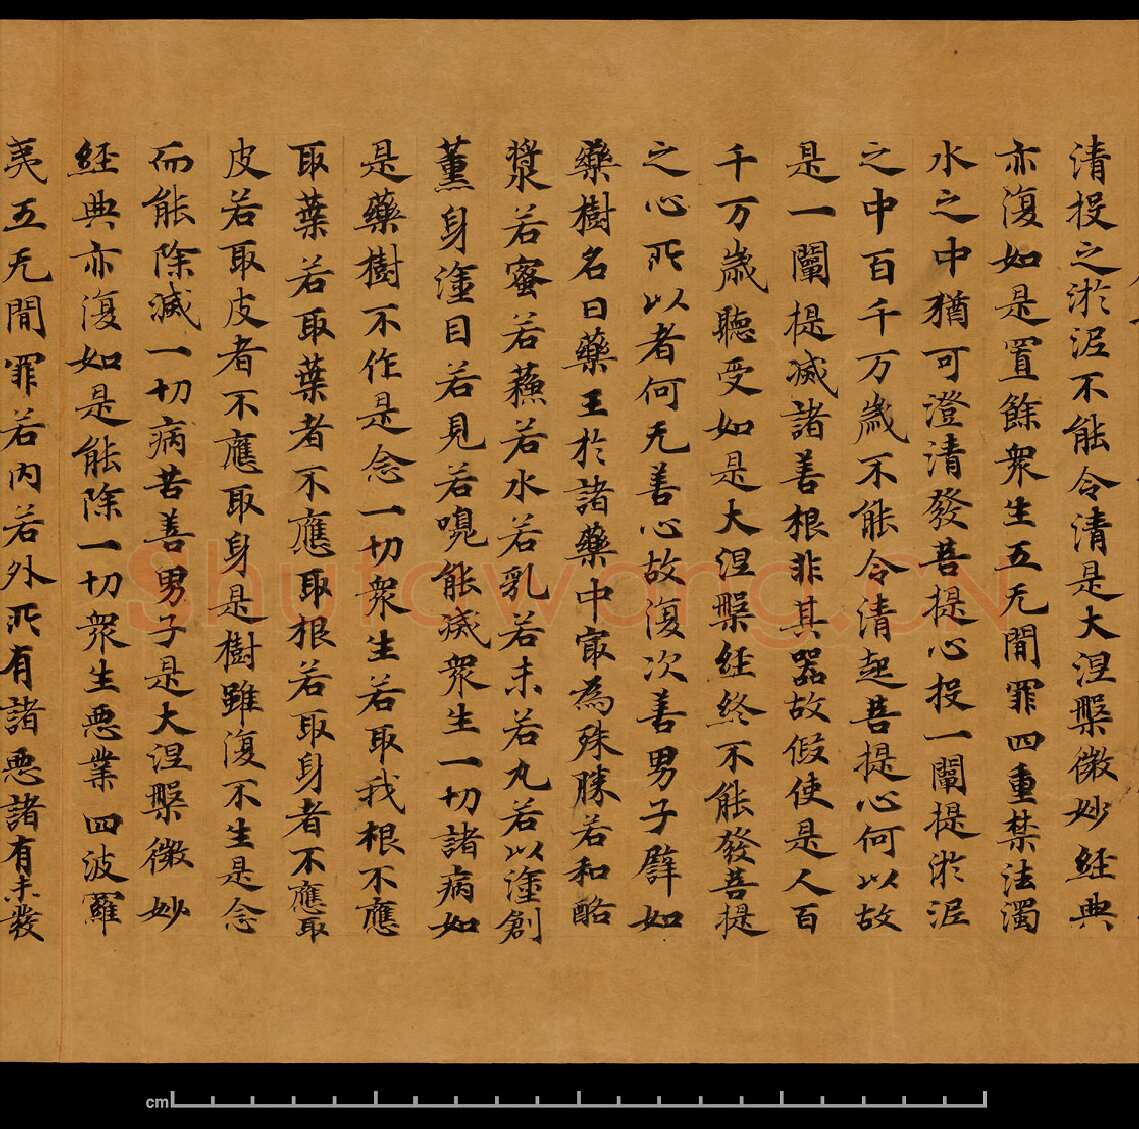 清投之淤泥不能令清是大涅槃微妙經典
亦復如是置餘衆生五无間罪四重禁法濁
水之中猶可澄清發菩提心投一闡提淤泥
之中百千万歲不能令清起菩提心何以故
是一闡提滅諸善根非其器故假使是人百
千万歲聽受如是大涅槃經終不能發菩提
之心所以者何无善心故復次善男子譬如
藥樹名曰藥王於諸藥中冣為殊勝若和酪
漿若蜜若蘓若水若乳若末若丸若以塗創
薰身塗目若見若嗅能滅衆生一切諸病如
是藥樹不作是念一切衆生若取我根不應
取葉若取葉者不應取根若取身者不應取
皮若取皮者不應取身是樹雖復不生是念
而能除滅一切病苦善男子是大涅槃微妙
經典亦復如是能除一切衆生惡業四波羅
夷五无間罪若内若外所有諸惡諸有未發
Shufawang.CN
cm